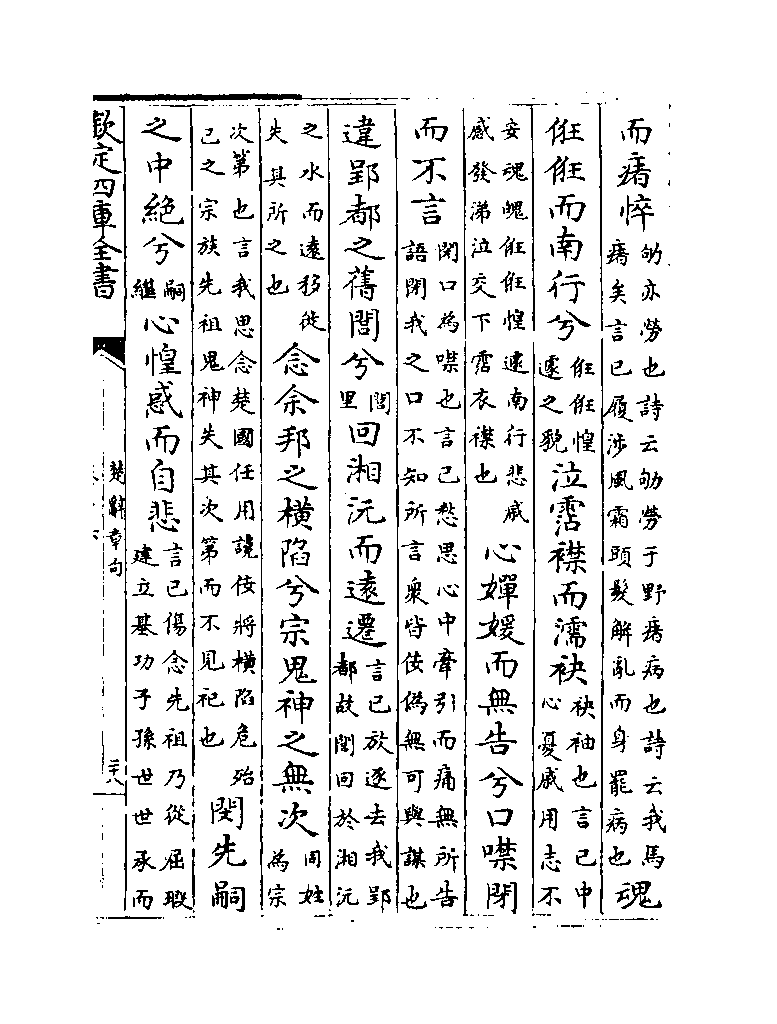 而瘏悴劬亦勞也詩云劬勞于野瘏病也詩云我馬瘏矣言己履涉風霜頭髮解亂而身罷病也魂
俇俇而南行兮俇俇惶遽之貌泣霑襟而濡袂袂袖也言己中心憂慼用志不
安魂魄俇俇惶遽南行悲慼感發涕泣交下霑衣襟也心嬋媛而無告兮口噤閉
而不言閉口為噤也言己愁思心中牽引而痛無所告語閉我之口不知所言衆皆佞偽無可與謀也
違郢都之舊閭兮閭里回湘沅而遠遷言己放逐去我郢都故閭回於湘沅
之水而遠移徙失其所之也念余邦之橫陷兮宗鬼神之無次同姓為宗
次第也言我思念楚國任用讒佞將橫陷危殆己之宗族先祖鬼神失其次第而不見祀也閔先嗣
之中絶兮嗣繼心惶惑而自悲言己傷念先祖乃從屈瑕建立基功子孫世世承而
欽定四庫全書
楚辭章句